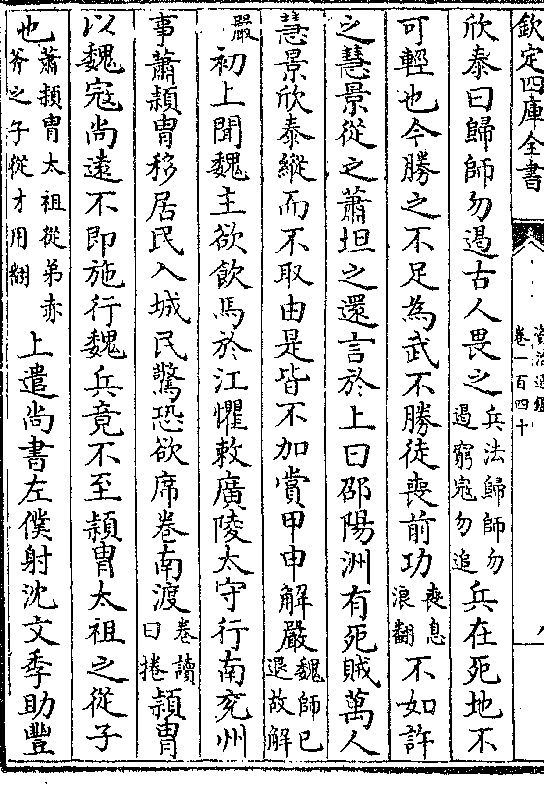 欽定四庫全書
資治通鑑
卷一百四十
八
欣泰曰歸師勿遏古人畏之兵法歸師勿遏窮寇勿追兵在死地不
可輕也今勝之不足為武不勝徒喪前功喪息浪翻不如許
之慧景從之蕭坦之還言於上曰邵陽洲有死賊萬人
慧景欣泰縱而不取由是皆不加賞甲申解嚴魏師已退故解
嚴初上聞魏主欲飲馬於江懼敕廣陵太守行南兖州
事蕭頴胄移居民入城民驚恐欲席卷南渡卷讀曰捲頴胄
以魏寇尚遠不即施行魏兵竟不至頴胄太祖之從子
也蕭頴胄太祖從弟赤斧之子從才用翻上遣尚書左僕射沈文季助豐